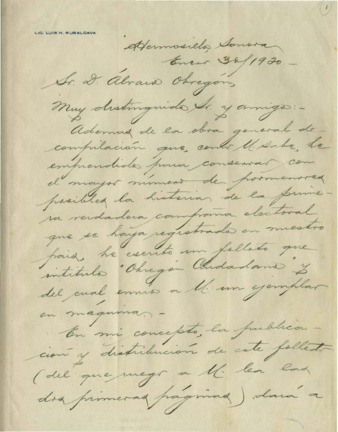 1
LIC. LUIS N. RUBALCAVA
Hermosillo, Sonora
Enero 31/1920
Sr. D Álvaro Obregón,
Muy distinguido Sr. y amigo:-
Ademas de la obra general de
compilación que, como U. sabe, he
emprendido para conservar con
el mayor número de pormenores
posibles la historia de la prime-
ra verdadera campaña electoral
que se haya registrado en nuestro
país, he escrito un folleto que
intitulo "Obregón Ciudadano" y
del cual envio a U un ejemplar
en máquina.-
En mi concepto, la publica-
cion y distribución de este folleto
(del que ruego a U lea las
dos primeras páginas) dará a